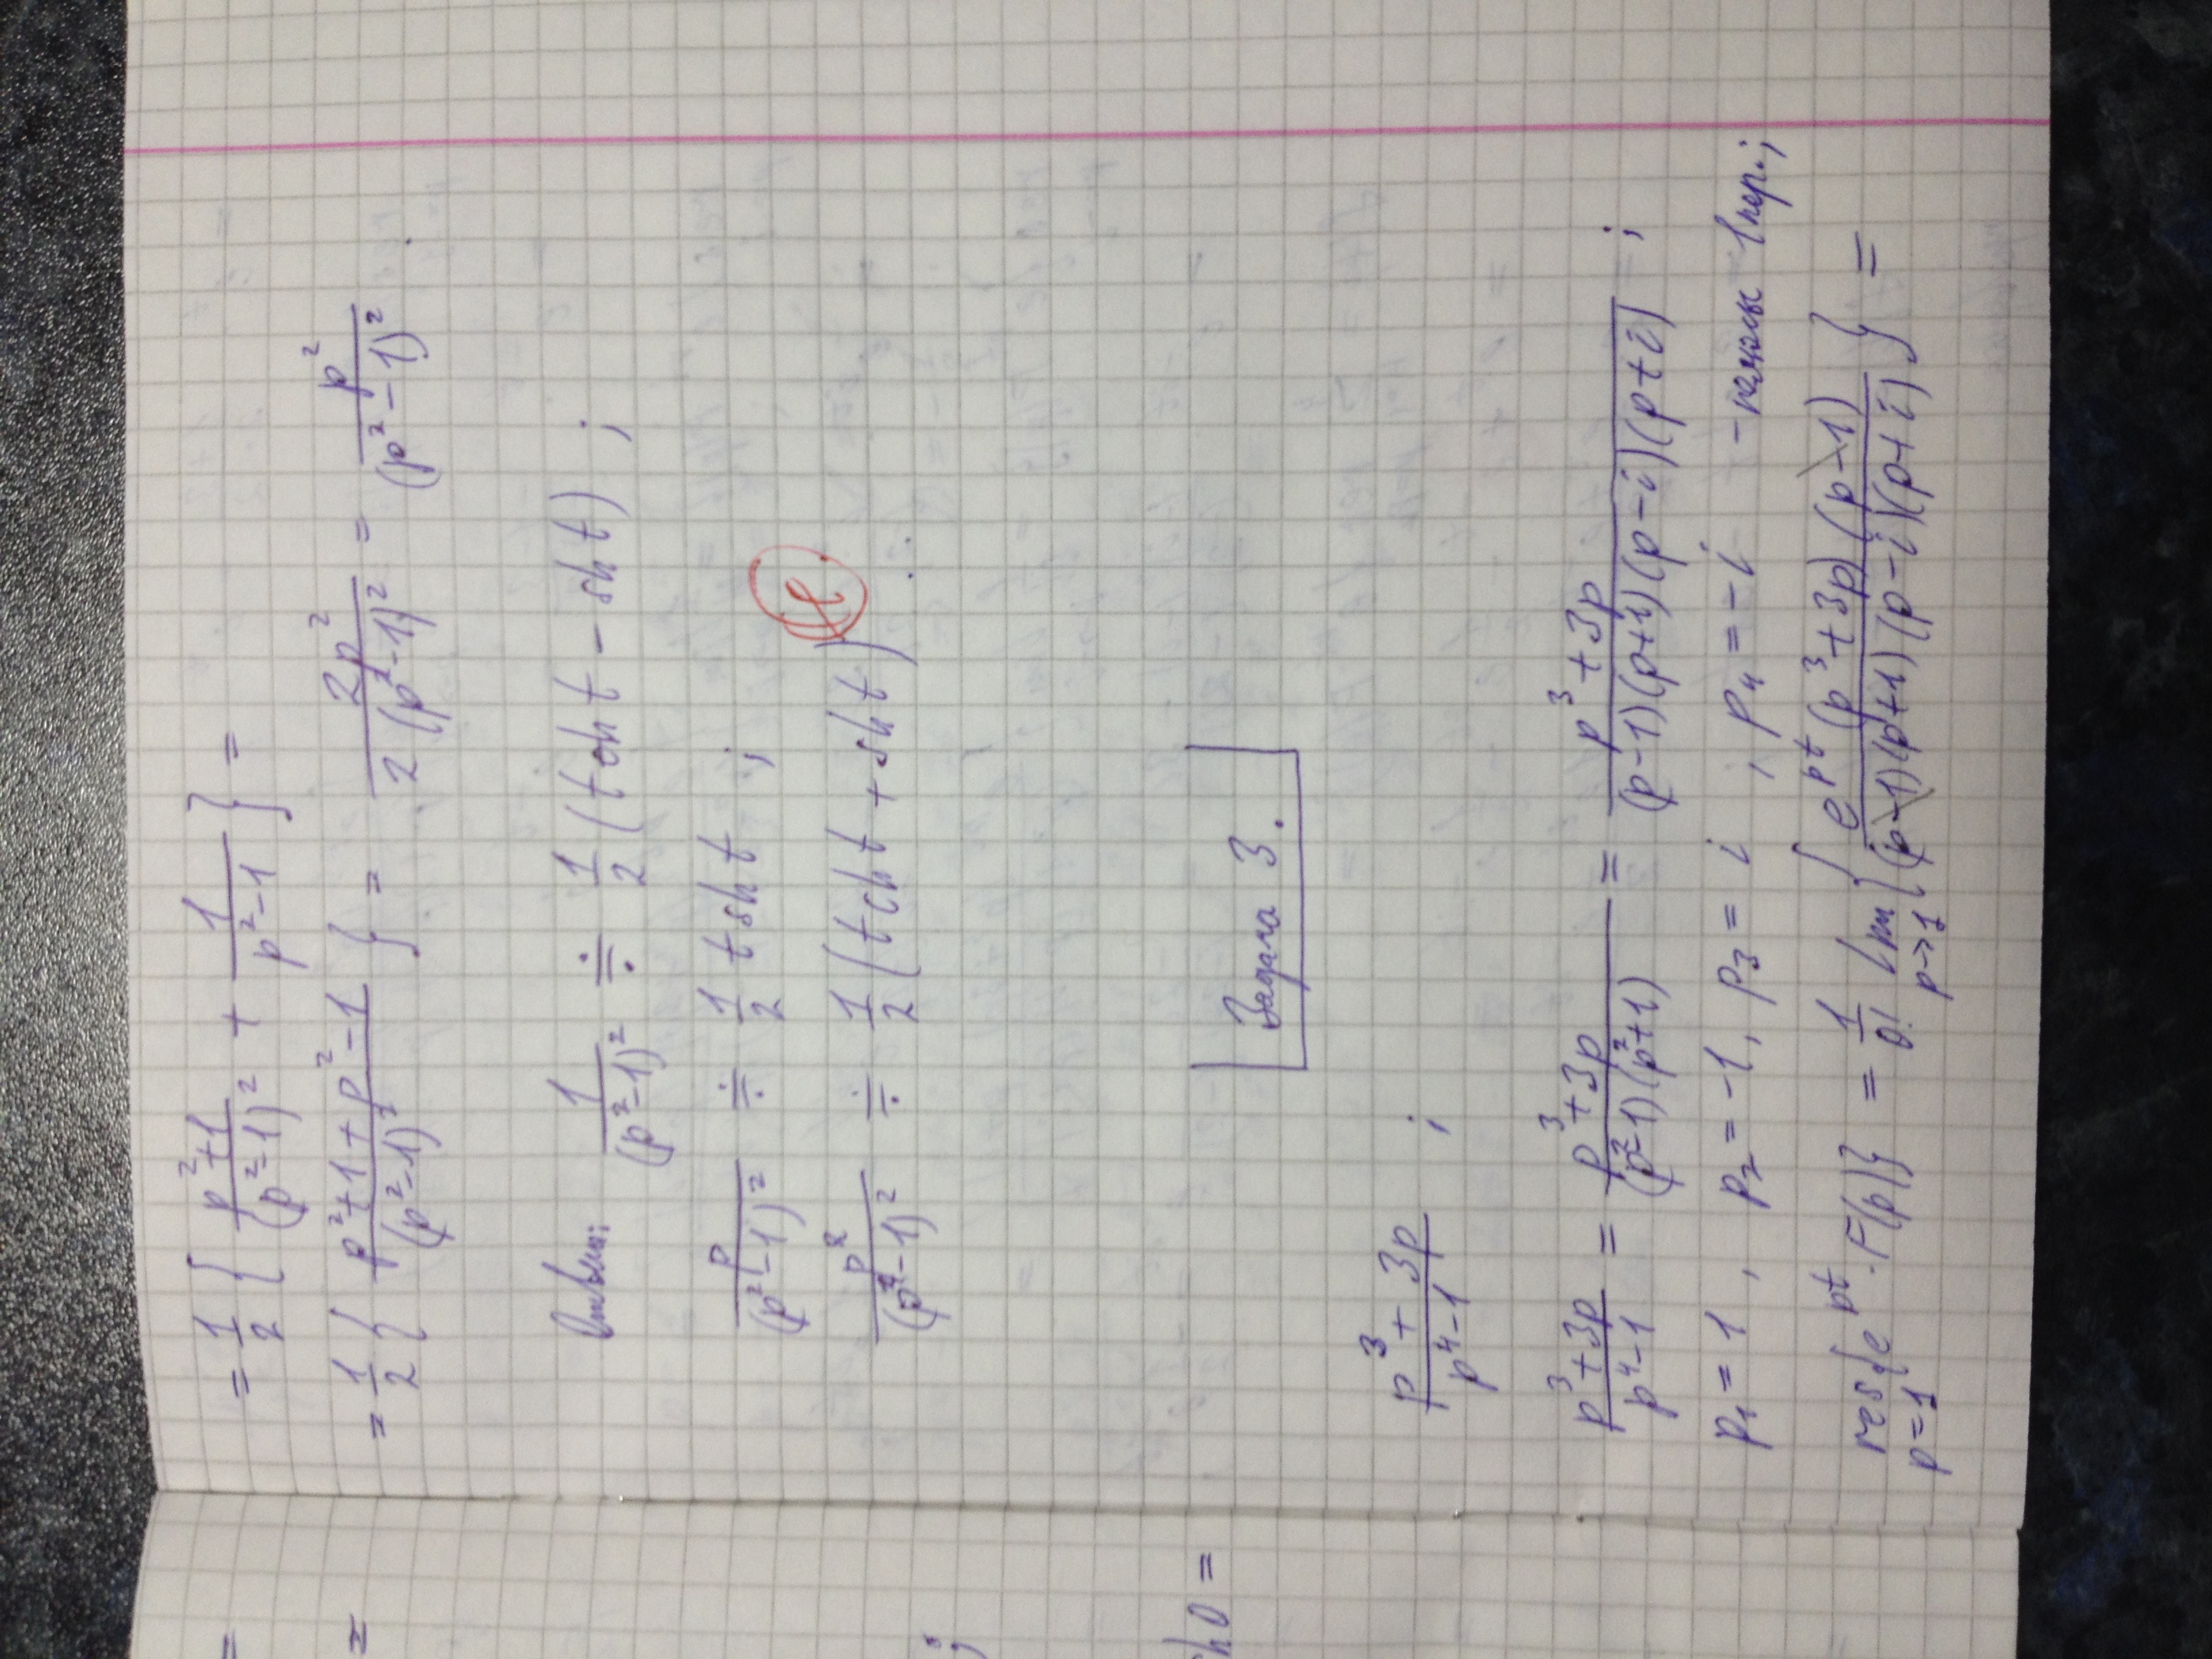 = 1/2 { (p²+1)/(p²-1)² + 1/(p²-1) } =
= 1/2 { (p²+1+p²-1)/(p²-1)² } = 2p²/(2(p²-1)²) = p²/(p²-1)² .
Ответ: 1/(p²-1)² ≑ 1/2 (t ch t - sh t) ;
p/(p²-1)² ≑ 1/2 t sh t ;
p²/(p²-1)² ≑ 1/2 (t ch t + sh t) .
Задача 3.
(p³+3p)/(p⁴-1) ;
(p³+3p)/(p⁴-1) = (p³+3p)/((p²-1)(p²+1)) = (p³+3p)/((p-1)(p+1)(p-i)(p+i)) ;
p₁ = 1 , p₂ = -1, p₃ = i , p₄ = -i - полюсы 1 пор.;
res{e^pt · F(p)} = 1/0! lim { e^pt (p³+3p)(p-1)/((p-1)(p+1)(p-i)(p+i)) } =
p=1 p→1
=
=
;
sh0 =